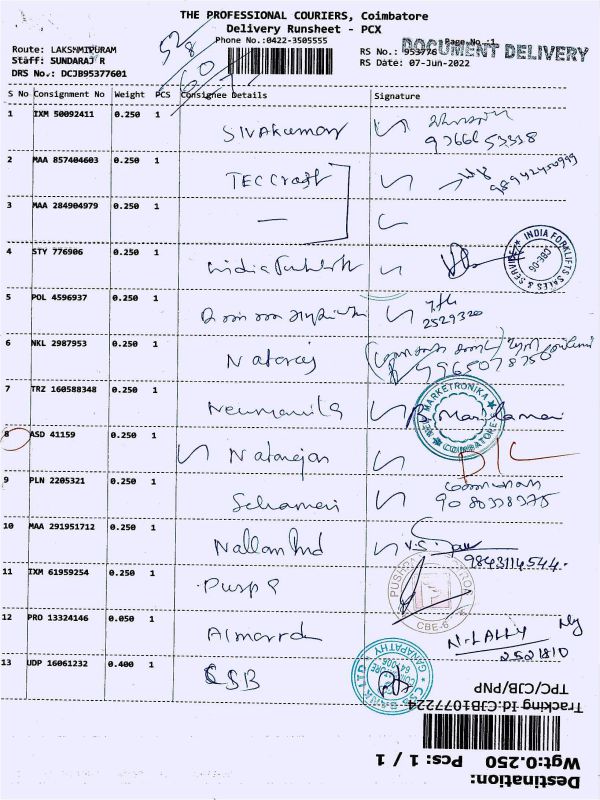 THE PROFESSIONAL COURIERS, Coimbatore
Delivery Runsheet - PCX
Phone No.:0422-3505555
Page No.:1
DOCUMENT DELIVERY
Route: LAKSHMIPURAM
Staff: SUNDARAJ R
DRS No.: DCJB95377601
RS No.: 953776
RS Date: 07-Jun-2022
52
8
60
S No Consignment No Weight PCS Consignee Details Signature
1 IXM 50092411 0.250 1 Sivakumar
9366653338
2 MAA 857404603 0.250 1 TECCraft
98942450999
3 MAA 284904979 0.250 1 —
4 STY 776906 0.250 1 India
INDIA FORKLIFTS SALES & SERVICE
CBE-06
5 POL 4596937 0.250 1
2529320
6 NKL 2987953 0.250 1 Nataraj
7 TRZ 160588348 0.250 1 Neumanila
MARKETRONIKA
COIMBATORE
8 ASD 41159 0.250 1 Natarajan
D/C
9 PLN 2205321 0.250 1
9080338375
10 MAA 291951712 0.250 1
V.S.
9843114544.
11 IXM 61959254 0.250 1 Puspa
CBE-6
12 PRO 13324146 0.050 1
N. LALLY
2521810
13 UDP 16061232 0.400 1 CSB
GANAPATHY
TPC/CJB/PNP
Tracking Id:CJB1077224
Wgt:0.250 Pcs: 1 / 1
Destination: